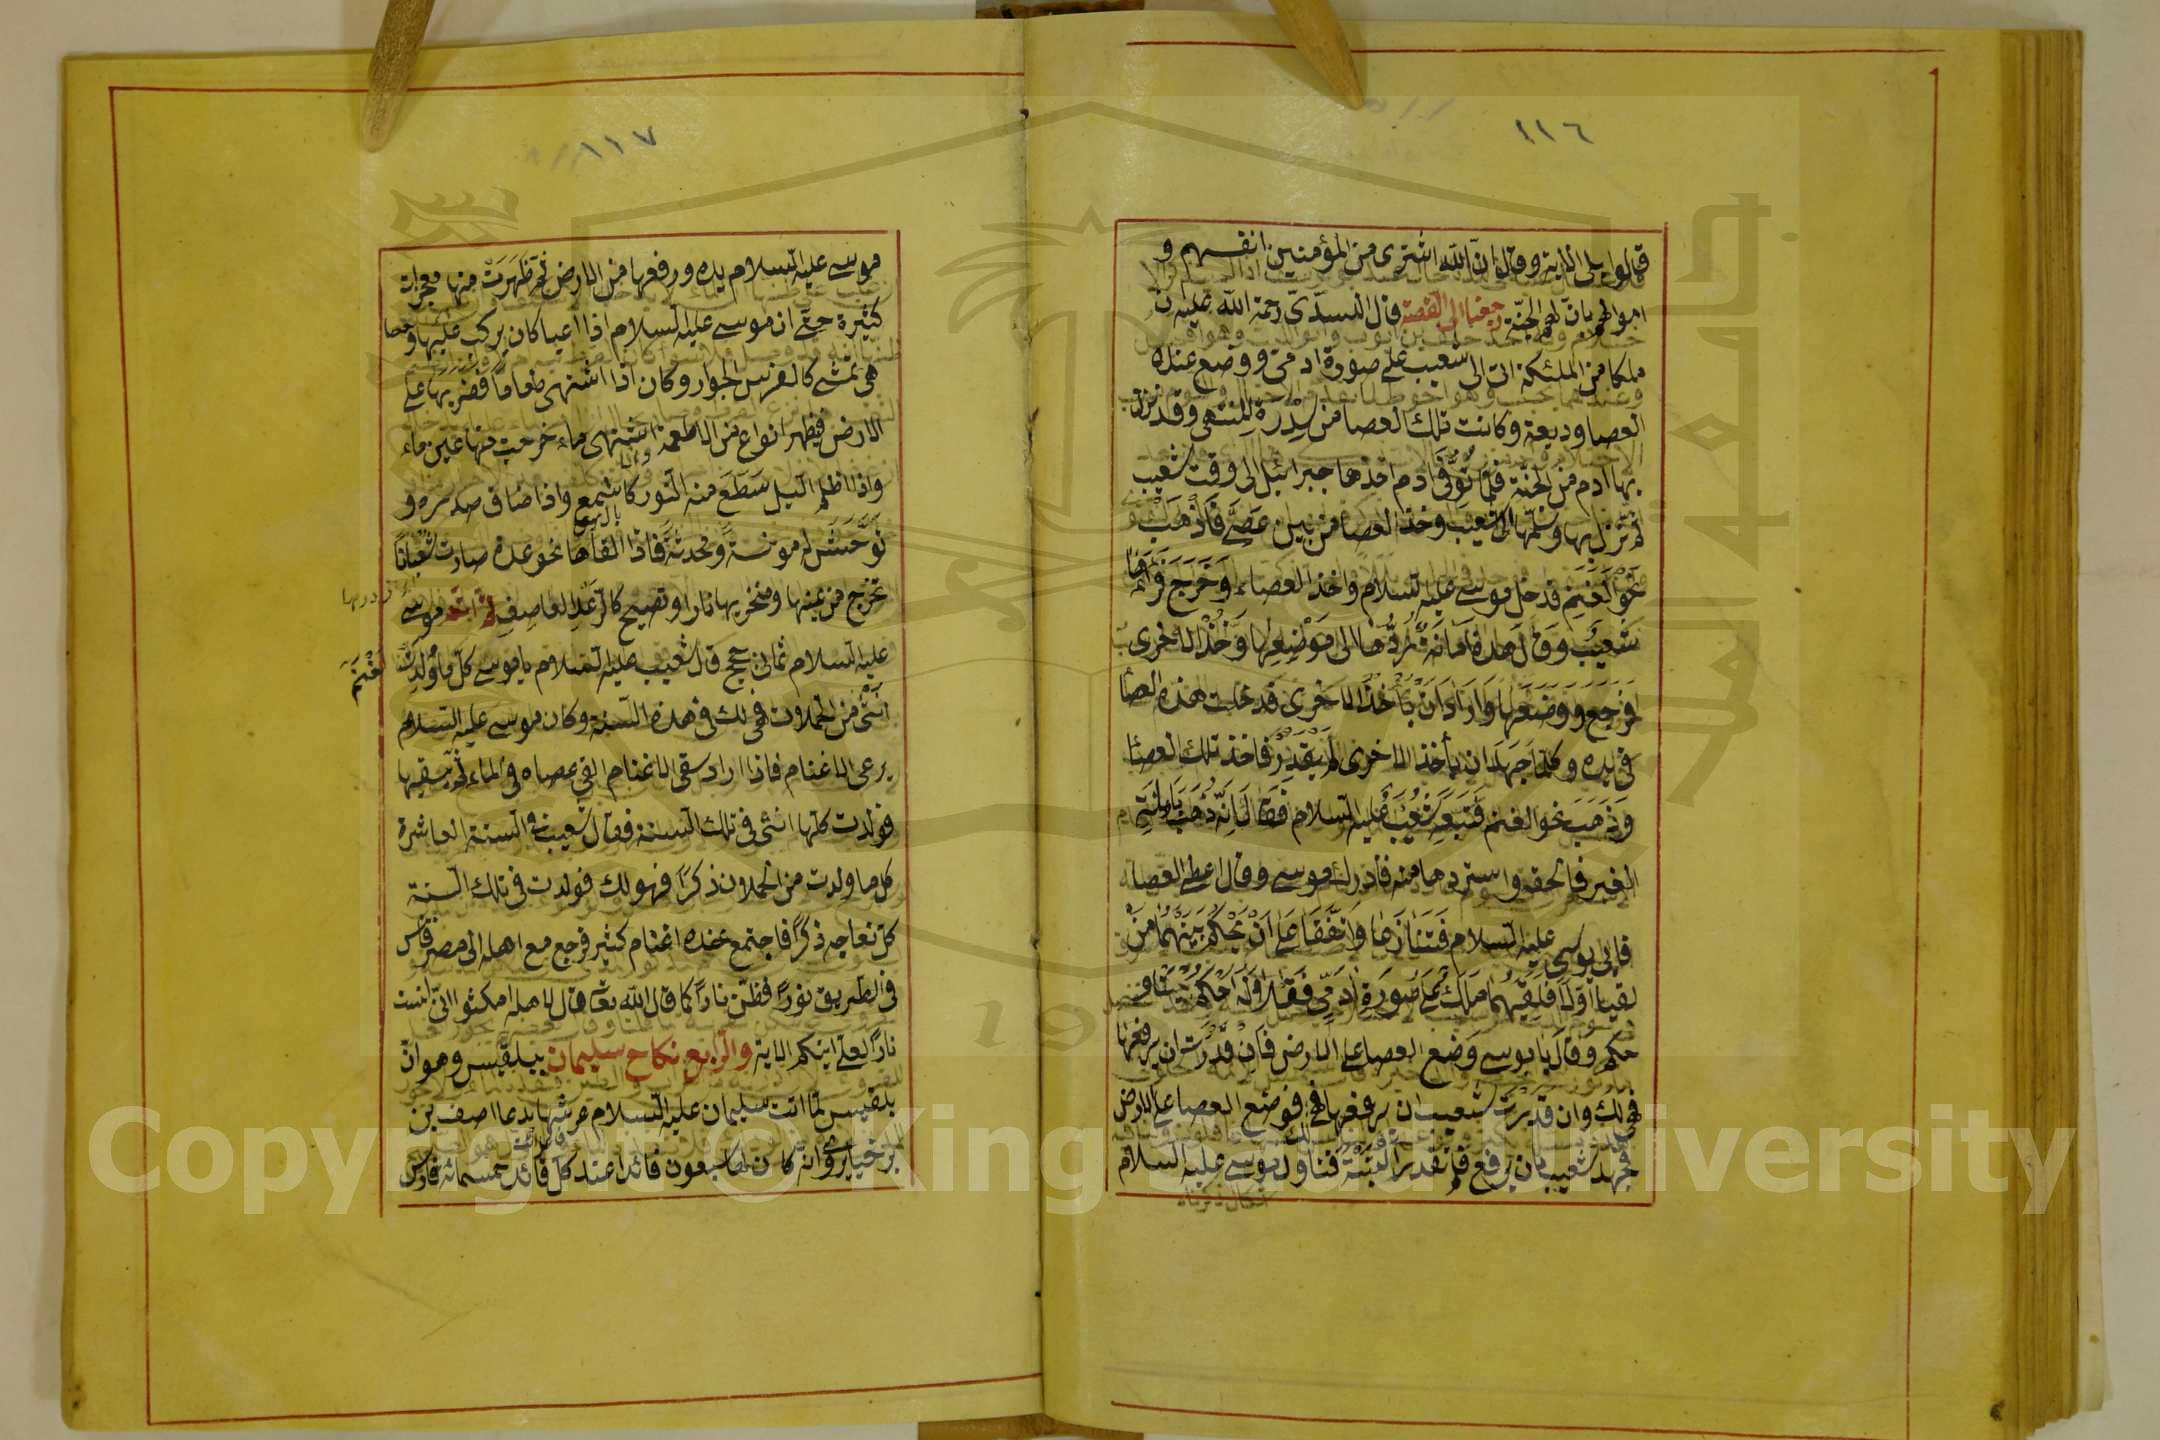 ١١٦
قالوا بلى الاية وقالوا ان الله اشترى من المؤمنين انفسهم و
اموالهم بان لهم الجنّة رجعنا الى القصة قال السدّى رحمة الله عليه ان
ملكا من الملئكة اتى الى شعيب على صورة ادمىّ ووضع عنده
العصا وديعة وكانت تلك العصا من سِدْرة المنتهى وقد نزل
بها ادم من الجنّة فلمّا تُوُفّى ادم اخذها جبرائيل الى وقت شعيب
ثم نزل بها وسلّمها الى شعيب وخذ العصا من بين عصىّ فاذهب
نحو الغنم فدخل موسى عليه السلام واخذ العصاء وَخَرَجَ فراها
شعيب وقال هذه امانة رُدّها الى مَوْضِعِها وَخُذ الاخرى
فرجع ووضعها واراد ان يأخذ الاخرى فدخلت هذه العصا
فى يده وكلّما جهد ان يأخذ الاخرى لم يقدر فاخذ تلك العصا
وذهب نحو الغنم فتبعه شعيب عليه السلام فقال انّه ذهب بامانة
الغير فالحقه واستردها منه فادرك موسى وقال اعطى العصاه
فابى موسى عليه السلام فتنازعا واتّفقا على ان يحكم بينهما من
لقيا اوّلا فلقيهما ملك على صورة ادمىّ فقالا له احكم بيننا
حكم وقال يا موسى وَضع العصا على الارض فان قدرت ان يرفعها
فهى لك وان قدرت شعيب ان يرفعها فهى فوضع العصا على الارض
فجهد شعيب بان يرفع فلم تقدر البتة فتناول موسى عليه السلام
١١٧
موسى عليه السلام يده ورفعها من الارض ثم ظَهَرَتْ منها معجزات
كثيرة حتّى ان موسى عليه السلام اذا اعيا كان يركب عليها وعصا
هى تمشى كالفرس الجوار وكان اذا اشتهى طعاماً فضربها على
الارض فيظهر انواع من الاطعمة واذا اشتهى ماء خرجت منها عين ماء
واذا اظلم الّيل سَطَعَ منه النور كالشمع واذا ضاق صدره و
توحّش له مونسةً ومحدثةً فاذا القاها نحو عدوه صارت ثعباناً
تخرج من عينها ومنخريها ناراً وتصيح كالرّعد العاصف ثم اتّم موسى
عليه السلام ثمانى حجج قال شعيب عليه السلام يا موسى كلّ ما وُلِدَتْ
غَنَم
انثى من الحملات فهى لك فى هذه السنة وكان موسى عليه السلام
يرعى الاغنام فاذا اراد سقى الاغنام القى عصاه فى الماء ثم يسقيها
فولدت كلّها انثى فى تلك السنة فقال شعيب فى السنة العاشرة
كل ما ولدت من الحملان ذكراً فهو لك فولدت فى تلك السنة
كل نعاجه ذكراً فاجتمع عنده اغنام كثير فرجع مع اهله الى مصر فآنس
فى الطريق نوراً فظنّ ناراً كما قال الله تعا فقال لاهله امكثوا انّى انست
ناراً لعلّى اتيكم الاية والرابع نكاح سليمان ببلقيس وهو انّ
بلقيس لمّا اتت سليمان عليه السلام عرشها بدعا اصف بن
برخيا يروى انّه كان لها سبعون قائدا عند كل قائد خمسمائة فارس
Copyright © King Saud University